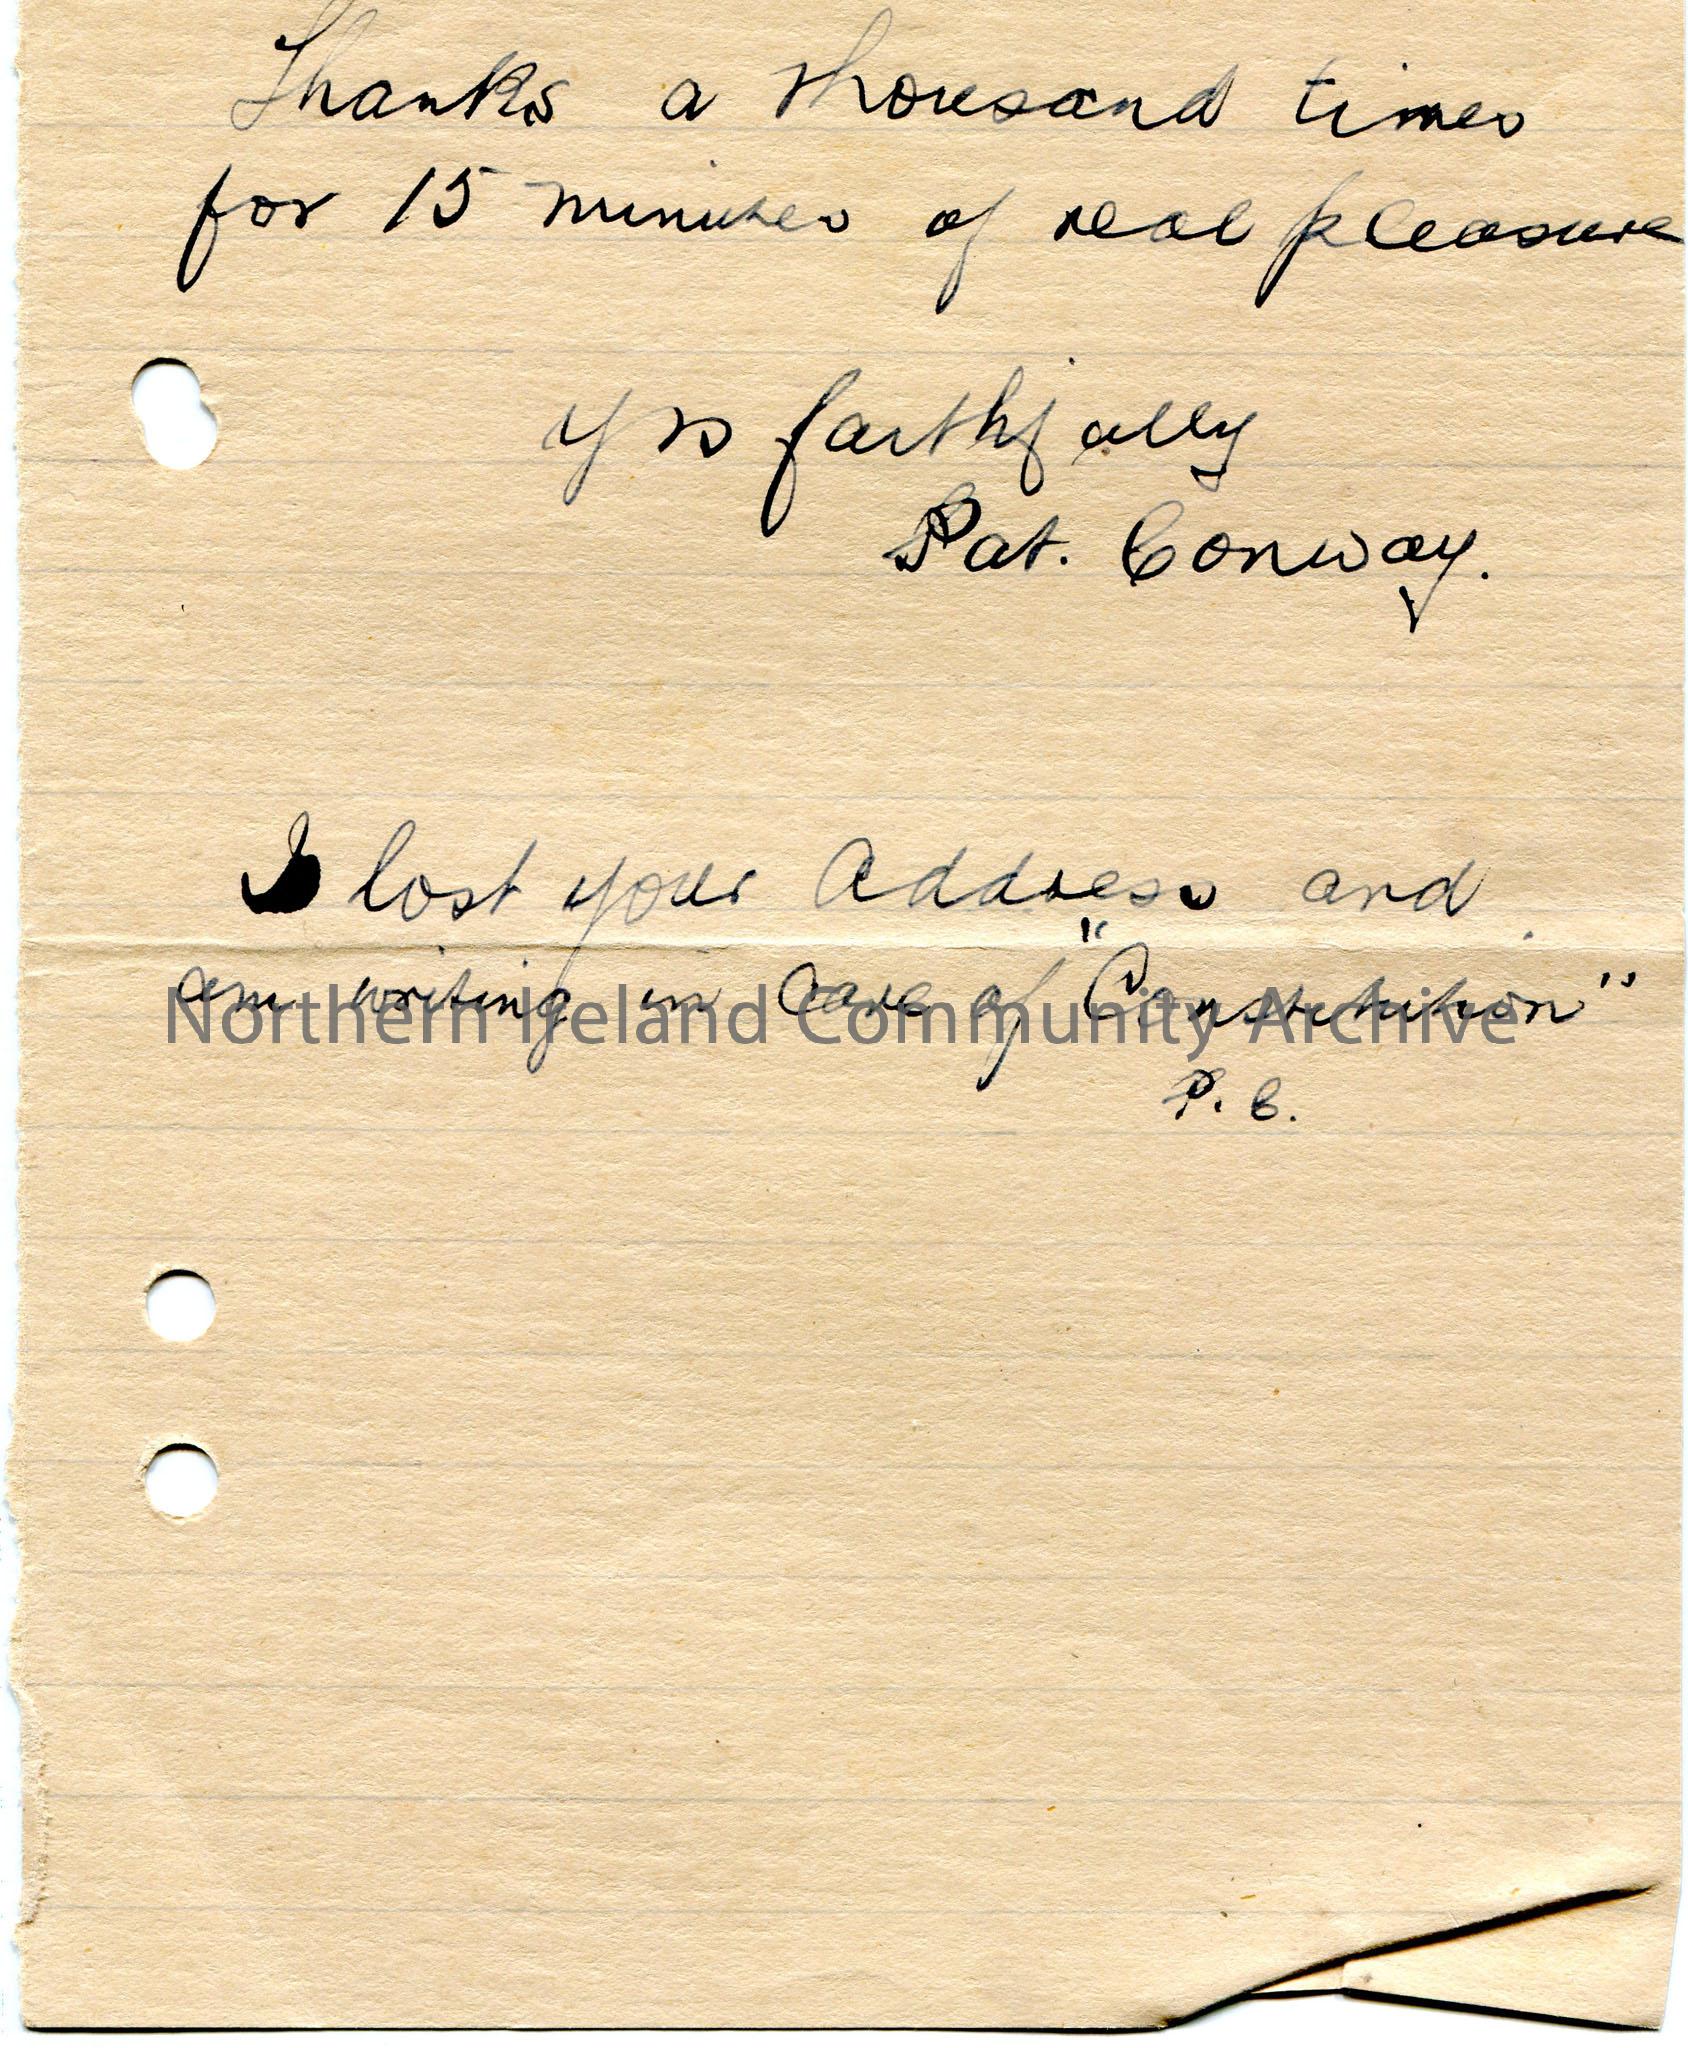 Thanks a thousand times
for 15 minutes of real pleasure
Yrs faithfully
Pat. Conway.
I lost your Address and
am writing in Care of "Constitution"
Northern Ireland Community Archive
P. C.